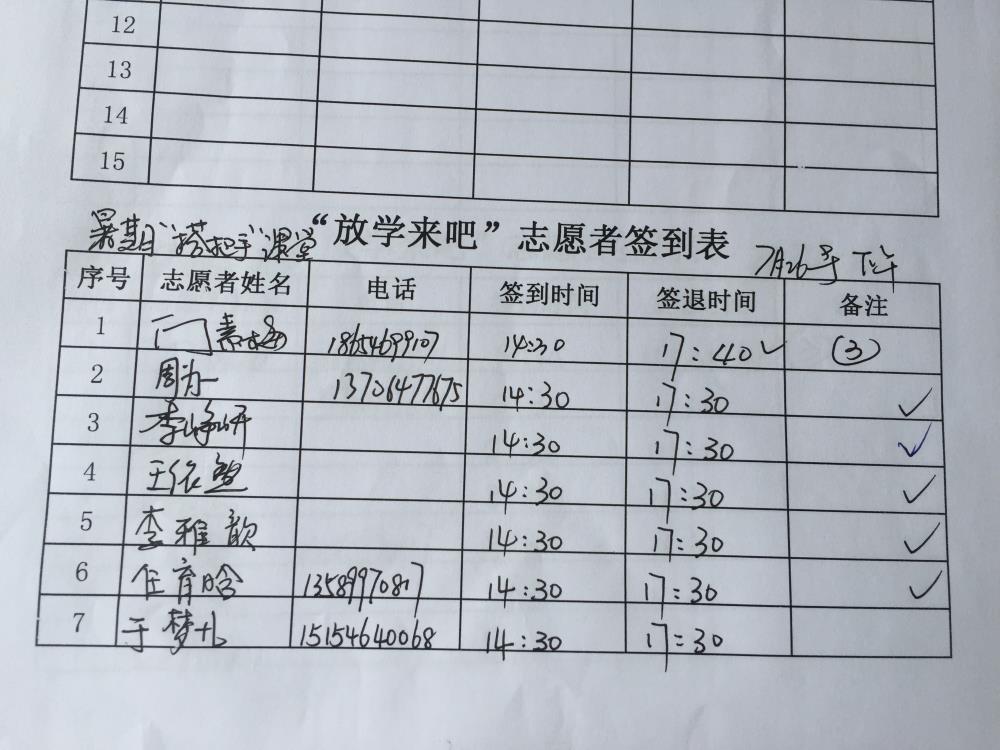 12
13
14
15
暑期"搭把手"课堂 "放学来吧"志愿者签到表 7月26号 下午
序号 志愿者姓名 电话 签到时间 签退时间 备注
1 门素梅 18654699107 14:30 17:40✓ (3)
2 周为一 13706477675 14:30 17:30 ✓
3 李峥妍 14:30 17:30 ✓
4 王依 14:30 17:30 ✓
5 李雅歆 14:30 17:30 ✓
6 任育晗 1358997087 14:30 17:30 ✓
7 于梦 15154640068 14:30 17:30